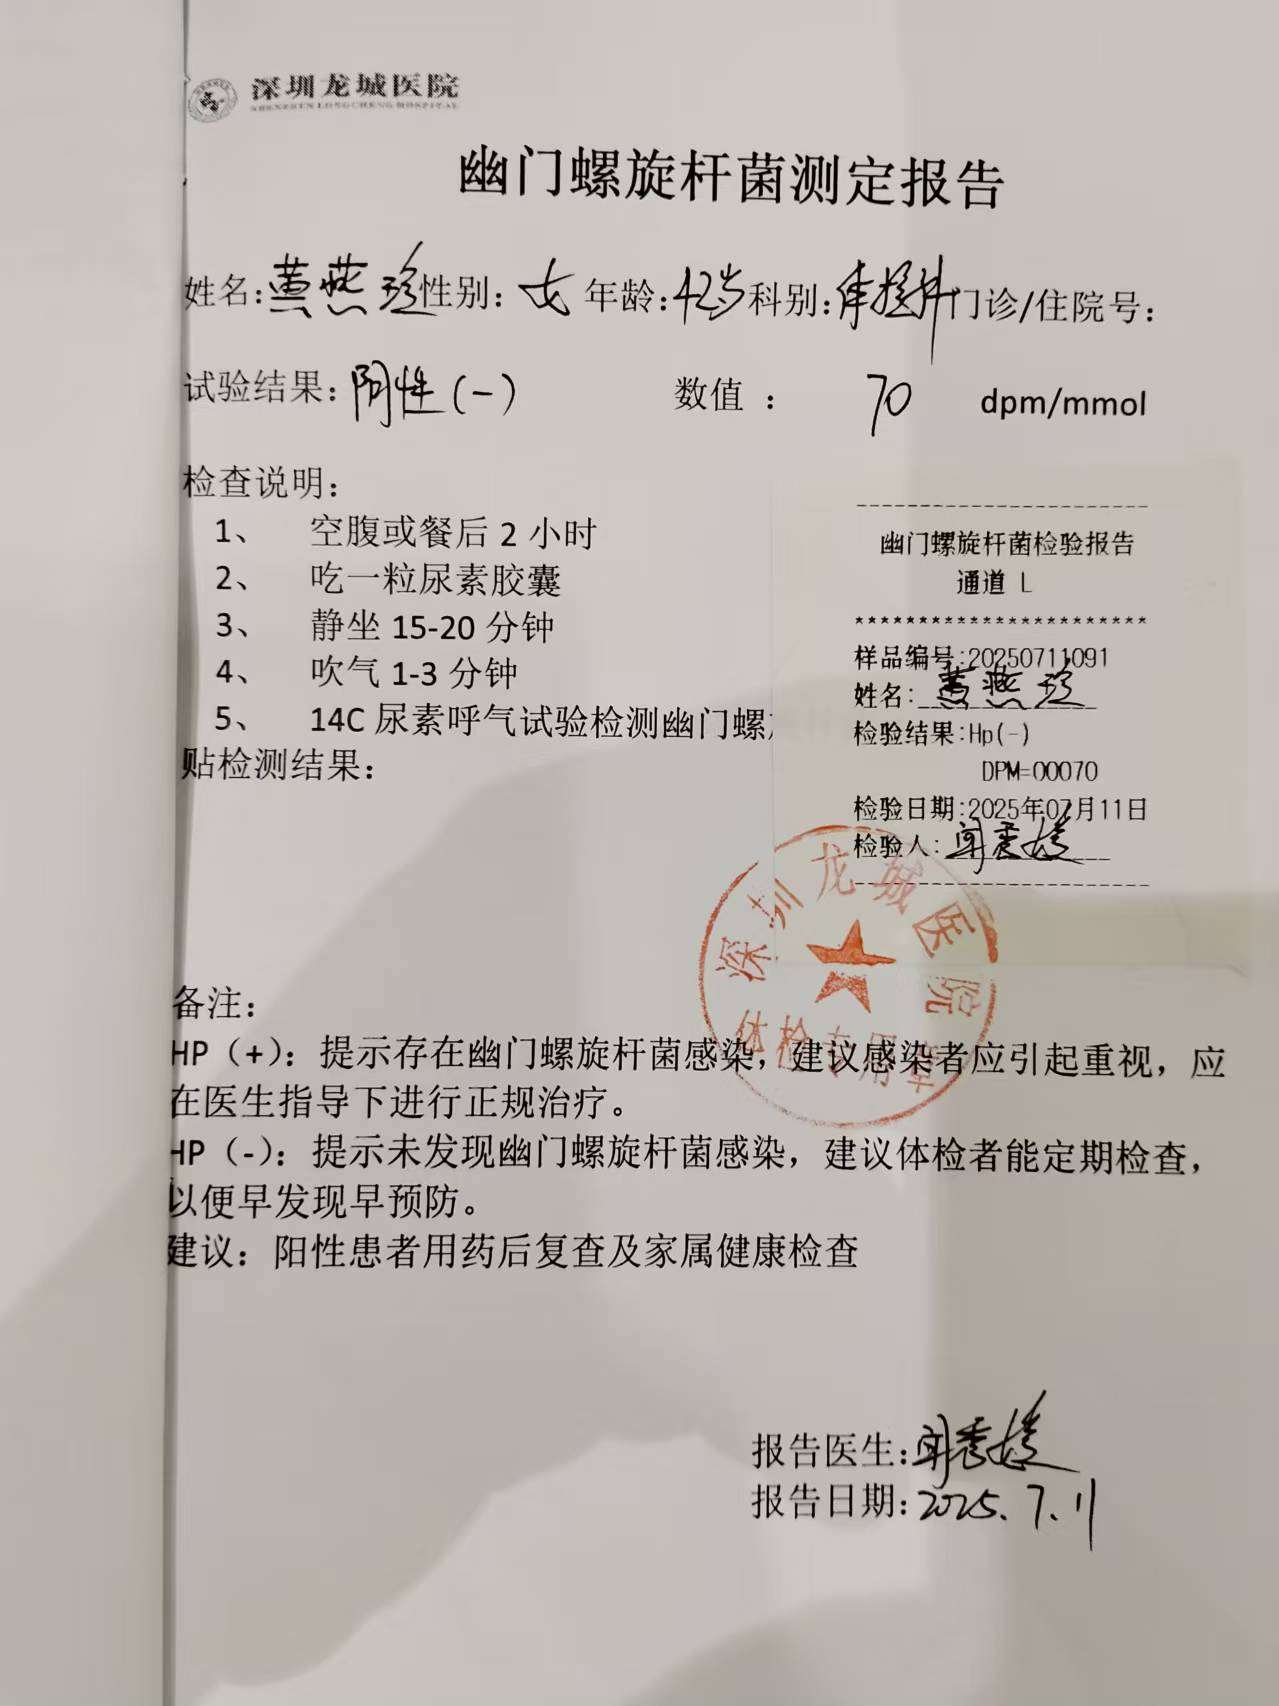 深圳龙城医院
SHENZHEN LONGCHENG HOSPITAL
幽门螺旋杆菌测定报告
姓名:黄燕珍 性别:女 年龄:42岁 科别:体检科 门诊/住院号:
试验结果:阴性(-) 数值: 70 dpm/mmol
检查说明:
1、 空腹或餐后 2 小时
2、 吃一粒尿素胶囊
3、 静坐 15-20 分钟
4、 吹气 1-3 分钟
5、 14C 尿素呼气试验检测幽门螺
贴检测结果:
幽门螺旋杆菌检验报告
通道 L
***********************
样品编号:20250711091
姓名:黄燕珍
检验结果:Hp(-)
DPM=00070
检验日期:2025年07月11日
检验人:
深圳龙城医院
体检专用章
备注:
HP(+):提示存在幽门螺旋杆菌感染,建议感染者应引起重视,应
在医生指导下进行正规治疗。
HP(-):提示未发现幽门螺旋杆菌感染,建议体检者能定期检查,
以便早发现早预防。
建议:阳性患者用药后复查及家属健康检查
报告医生:
报告日期:2025.7.11